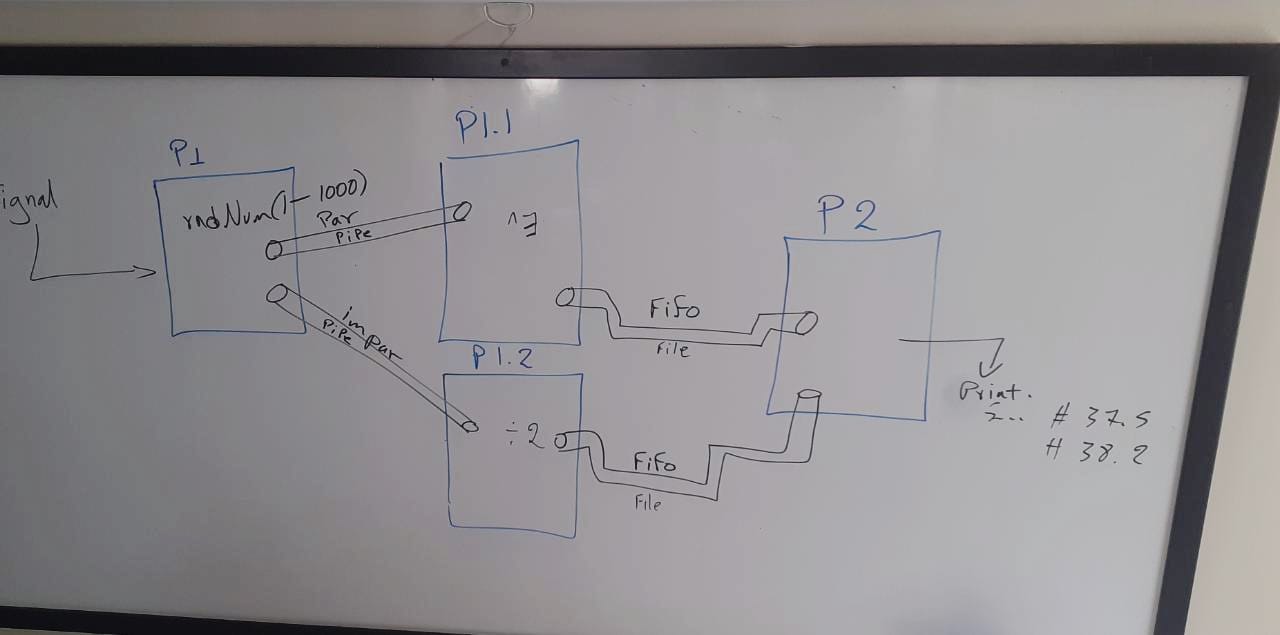 P1
ignal
rndNum(1-1000)
Par
PiPe
imPar
PiPe
P1.1
P1.2
÷2
Fifo
File
Fifo
File
P2
Print.
# 37.5
# 38.2